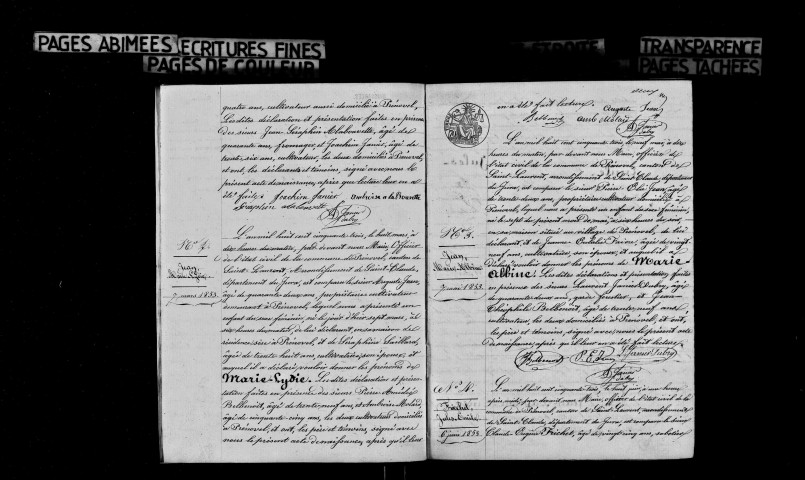 PAGES ABIMEES
ECRITURES FINES
PAGES DE COULEUR
TRANSPARENCE
PAGES TACHÉES
quatre ans, cultivateur aussi domicilié à Prénovel,
Lesdites déclaration et présentation faites en présence
des sieurs Jean Séraphin Alabouvette, âgé de
quarante ans, fromager et Joachim Janier, âgé de
trente six ans, cultivateur, les deux domicilié à Prénovel,
et ont, les déclarants et témoins, signé avec nous le
présent acte de naissance, après que lecture leur en a
été faite. Joachim Janier
L'an mil huit cent cinquante trois, le huit mars, à
dix heures du matin, par devant nous Maire, Officier
de l'état civil de la commune de Prénovel, canton de
Saint-Laurent, Arrondissement de Saint-Claude,
département du Jura, est comparu le sieur Auguste Jean,
âgé de quarante deux ans, propriétaire cultivateur
demeurant à Prénovel, lequel nous a présenté un
enfant du sexe féminin, né le jour d'hier sept mars, à
six heures du matin, de lui déclarant, en sa maison de
résidence sise à Prénovel, et de Séraphine Gaillard,
âgée de trente huit ans, cultivatrice, son épouse, et
auquel il a déclaré vouloir donner les prénoms de
Marie-Lydie. Lesdites déclaration et présen-
tation faites en présence des sieurs Pierre Amédée
Bellenoit, âgé de trente neuf ans, et
âgé de cinquante cinq ans, les deux cultivateurs domiciliés
à Prénovel, et ont, les père et témoins, signé avec
nous le présent acte de naissance, après qu'il leur
N° 2.
Jean
Marie-Lydie
7 mars 1853
en a été fait lecture. Auguste Jean
L'an mil huit cent cinquante trois, le neuf mai, à dix
heures du matin, par devant nous Maire, officier de
l'état civil de la commune de Prénovel, canton de
Saint-Laurent, arrondissement de Saint-Claude, département
du Jura, est comparu le sieur Jean, âgé
de trente deux ans, propriétaire cultivateur domicilié à
Prénovel, lequel nous a présenté un enfant du sexe féminin,
né le sept du présent mois de mai, à six heures du soir,
en sa maison située au village de Prénovel, de lui
déclarant, et de Jeanne âgée de vingt-
neuf ans, cultivatrice, son épouse, et auquel il a
déclaré vouloir donner les prénoms de Marie-
Albine. Lesdites déclaration et présentation faites
en présence des sieurs Laurent Janier Dubry, âgé
de quarante deux ans, garde forestier, et Jean-
Théophile Bellenoit, âgé de trente neuf ans,
cultivateur, les deux domiciliés à Prénovel, et ont,
les père et témoins, signé avec nous le présent acte
de naissance, après qu'il leur en a été fait lecture.
N° 3.
Jean,
Marie-Albine
7 mai 1853.
N° 4.
Frichet,
6 juin 1853
L'an mil huit cent cinquante trois, le huit juin, à une heure
après midi, par devant nous Maire, officier de l'état civil de la
commune de Prénovel, canton de Saint-Laurent, arrondissement
de Saint-Claude, département du Jura, est comparu le sieur
Claude Eugène Frichet, âgé de vingt cinq ans, sabotier